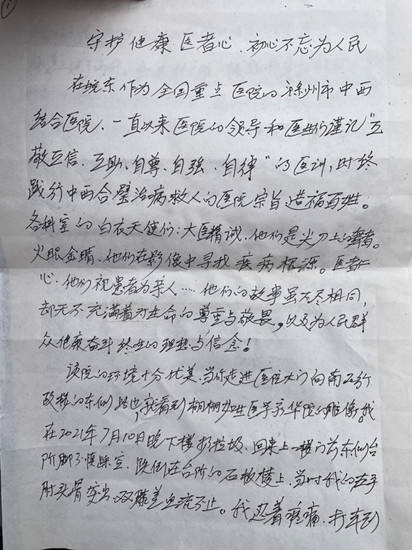 守护健康医者心、初心不忘为人民
在皖东作为全国重点医院的滁州市中西
结合医院、一直以来医院的领导和医生们谨记"互
敬互信、互助、自尊、自强、自律"的医训,时终
践行中西合璧治病救人的医院宗旨造福百姓。
各科室的白衣天使们:大医精诚、他们是尖刀上的舞者。
火眼金睛、他们在影像中寻找疾病根源。医者仁
心、他们视患者为亲人……他们的故事虽不尽相同,
却无不充满着对生命的尊重与敬畏。以及为人民群
众健康奋斗终生的理想与信念!
该院的环境十分优美、当你走进医院大门向南
就看到栩栩如生医圣华佗的雕像。我
在2021年7月10日晚下楼扔垃圾、回来上一楼门前东侧台
阶脚下慎踩空、跌倒在台阶的石板楼上、当时我的左手
肘头骨突出、双膝盖血流不止。我忍着疼痛、打车到